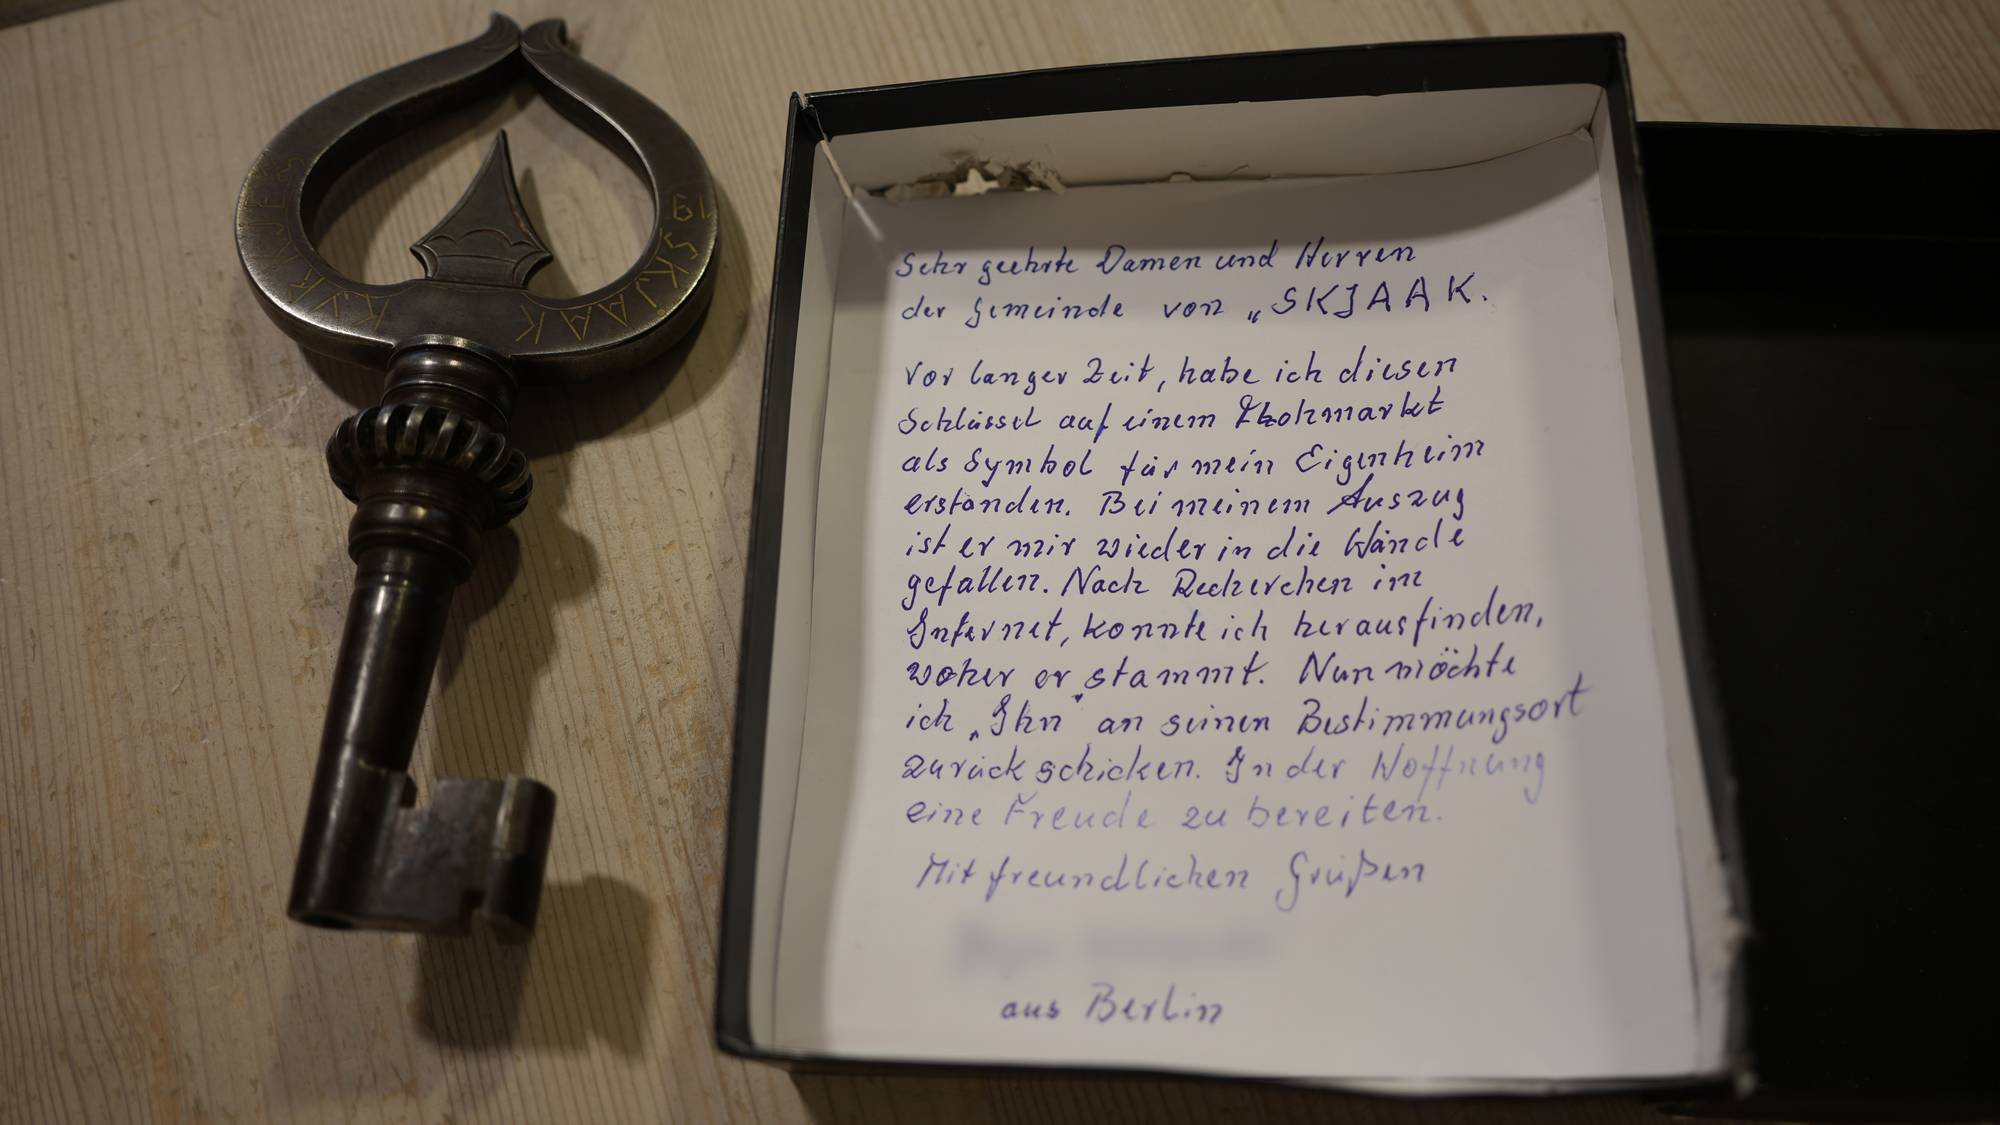 SKJAAK
KJRKJES
19
Sehr geehrte Damen und Herren
der Gemeinde von „SKJAAK.
Vor langer Zeit, habe ich diesen
Schlüssel auf einem Flohmarkt
als Symbol für mein Eigenheim
erstanden. Bei meinem Auszug
ist er mir wieder in die Hände
gefallen. Nach Recherchen im
Internet, konnte ich herausfinden,
woher er stammt. Nun möchte
ich „Ihn" an seinen Bestimmungsort
zurück schicken. In der Hoffnung
eine Freude zu bereiten.
Mit freundlichen Grüßen
aus Berlin